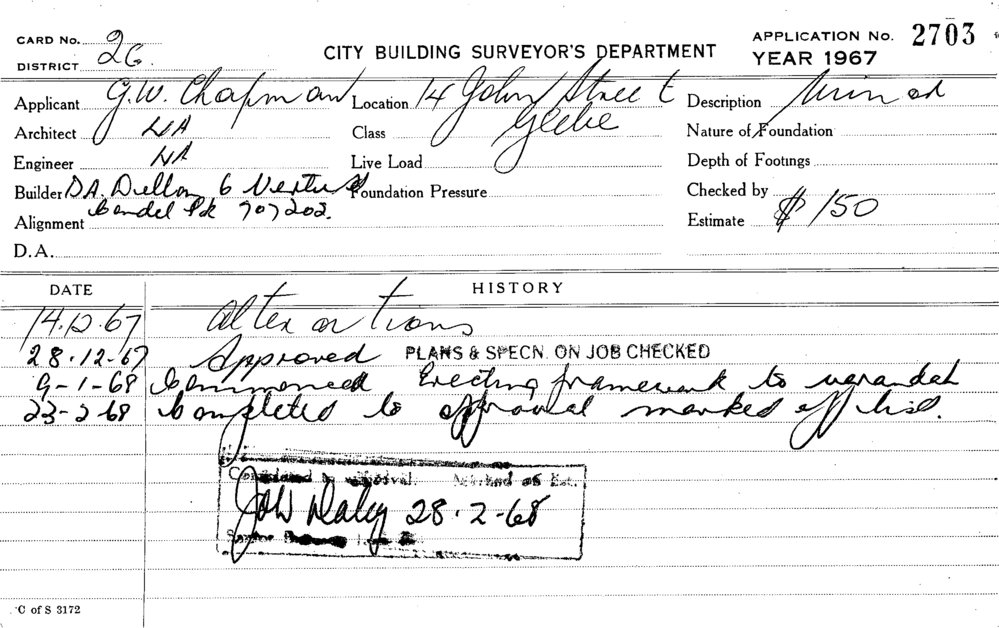 CARD No. 26
DISTRICT
CITY BUILDING SURVEYOR'S DEPARTMENT
APPLICATION No. 2703
YEAR 1967
Applicant G.W. Chapman Location 14 John Street Description Minor
Architect NA Class Glebe Nature of Foundation
Engineer NA Live Load Depth of Footings
Builder D.A. Dillon 6 Foundation Pressure Checked by
Alignment Pk 707202. Estimate $150
D.A.
DATE HISTORY
14.12.67 Alterations
28.12.67 Approved PLANS & SPECN. ON JOB CHECKED
9-1-68 Commenced Erecting framework to verandah
23-2-68 Completed to approval marked off list.
28.2-68
C of S 3172